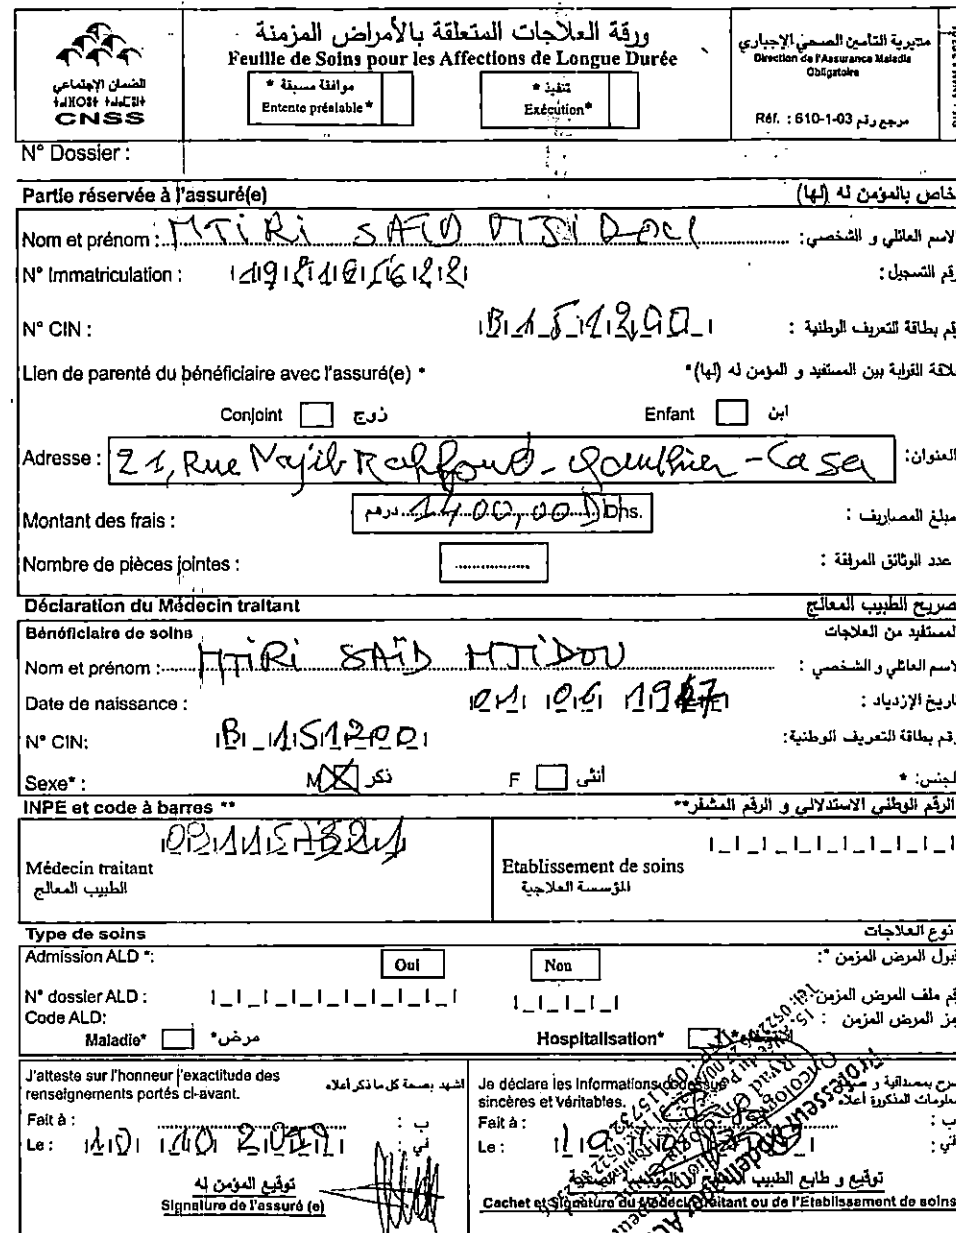 ورقة العلاجات المتعلقة بالأمراض المزمنة
Feuille de Soins pour les Affections de Longue Durée
الضمان الإجتماعي
CNSS
موافقة مسبقة *
Entente préalable *
تنفيذ *
Exécution*
مديرية التأمين الصحي الإجباري
Direction de l'Assurance Maladie
Obligatoire
Réf. : 610-1-03 مرجع رقم
N° Dossier :
Partie réservée à l'assuré(e) خاص بالمؤمن له (لها)
Nom et prénom : MTIRI SAID MJIDOU الاسم العائلي و الشخصي:
N° Immatriculation : رقم التسجيل :
N° CIN : B 151200 رقم بطاقة التعريف الوطنية :
Lien de parenté du bénéficiaire avec l'assuré(e) * علاقة القرابة بين المستفيد و المؤمن له (لها)*
Conjoint زوج Enfant ابن
Adresse : 21, Rue Najib - Gauthier - Casa العنوان:
Montant des frais : درهم 1400,00 Dhs. مبلغ المصاريف :
Nombre de pièces jointes : عدد الوثائق المرفقة :
Déclaration du Médecin traitant تصريح الطبيب المعالج
Bénéficiaire de soins المستفيد من العلاجات
Nom et prénom : MTIRI SAÏD MJIDOU الاسم العائلي و الشخصي :
Date de naissance : 01 06 تاريخ الإزدياد :
N° CIN: B 151200 رقم بطاقة التعريف الوطنية:
Sexe* : M ذكر F أنثى الجنس: *
INPE et code à barres ** الرقم الوطني الاستدلالي و الرقم المشفر**
Médecin traitant
الطبيب المعالج
Etablissement de soins
المؤسسة العلاجية
Type de soins نوع العلاجات
Admission ALD *: Oui Non قبول المرض المزمن *:
N° dossier ALD : رقم ملف المرض المزمن
Code ALD: رمز المرض المزمن :
Maladie* مرض* Hospitalisation*
J'atteste sur l'honneur l'exactitude des
renseignements portés ci-avant.
اشهد بصحة كل ما ذكر أعلاه
Fait à : ب :
Le : في :
توقيع المؤمن له
Signature de l'assuré (e)
Je déclare les informations
sincères et véritables.
Fait à : ب :
Le : في :
توقيع و طابع الطبيب
Cachet et signature du Médecin traitant ou de l'Etablissement de soins
Professeur